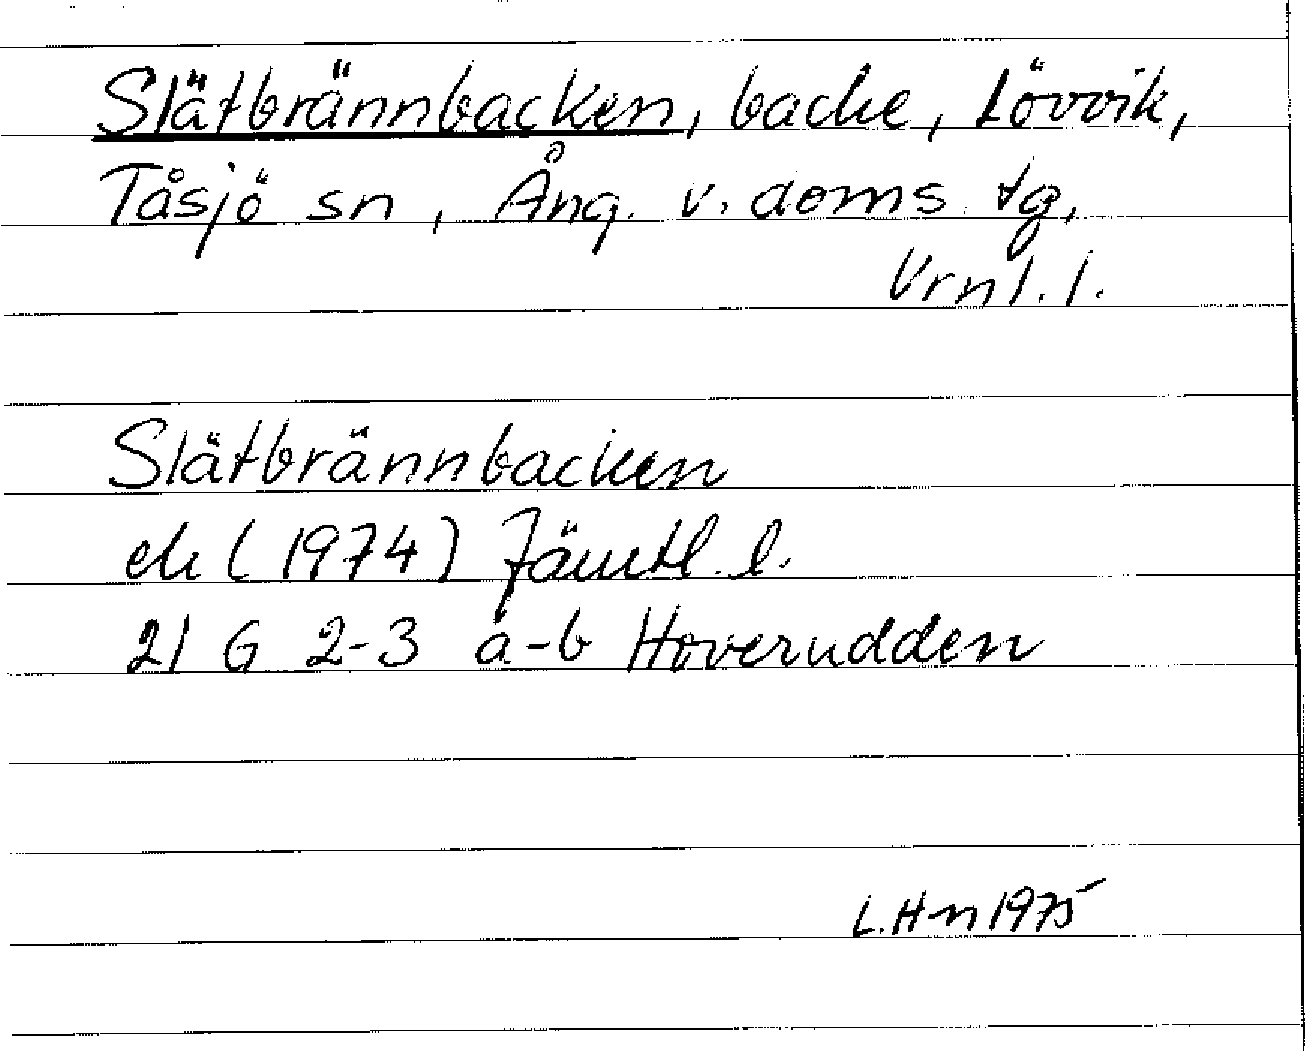 Slätbrännbacken, backe, Lövvik,
Tåsjö sn, Ång. v. doms. tg,
Vrnl. l.
Slätbrännbacken
ek (1974) Jämtl. l.
21 G 2-3 a-b Hoverudden
L. H-n 1975